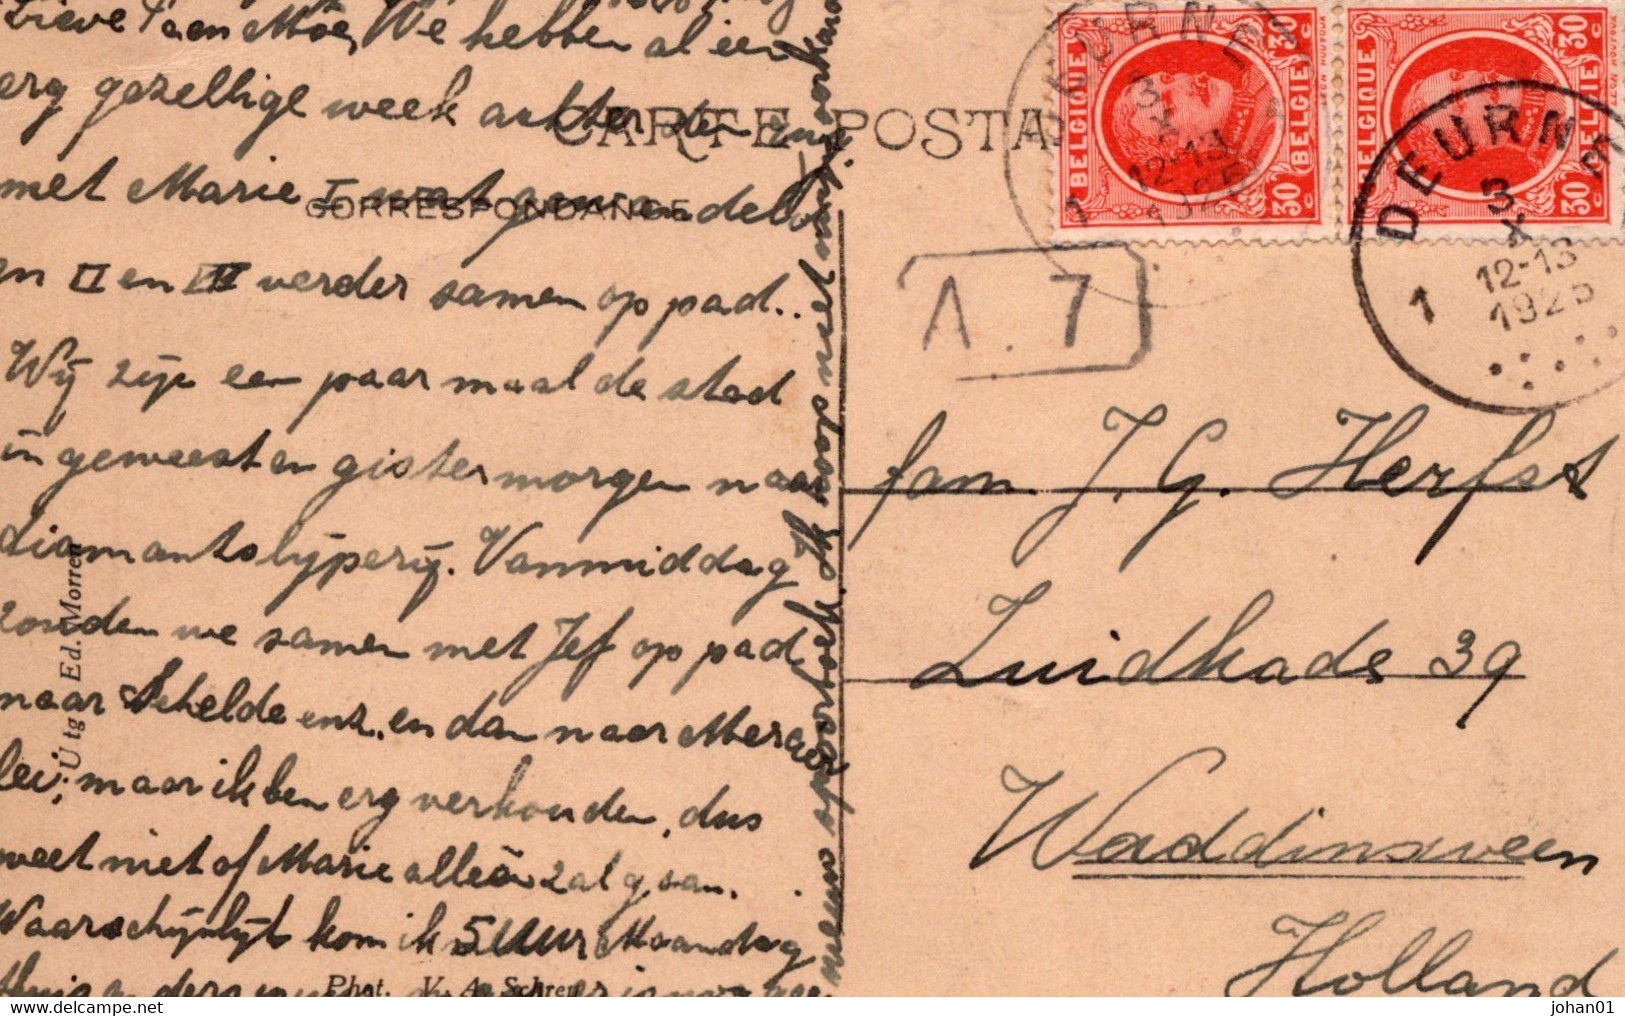 Lieve Pa en Moe, We hebben al een
erg gezellige week achter den rug
met Marie I wat gewandeld
en II en III verder samen op pad..
Wij zijn een paar maal de stad
in geweest en gistermorgen naar
diamantslijperij. Vanmiddag
zouden we samen met Jef op pad
naar Schelde enz. en dan naar Merc
lei, maar ik ben erg verkouden, dus
weet niet of Marie alleen zal gaan.
Waarschijnlijk kom ik 5 uur Maandag
thuis anders
Ik hoop dat
CARTE POSTA
CORRESPONDANCE
Utg Ed. Morren
Phot. V. A. Schrey
BELGIQUE 30 c BELGIE 30 c
BELGIQUE 30 c BELGIE 30 c
DEURNE 1
3 X
12-13
1925
DEURNE 1
3 X
12-13
1925
A. 7
fam. J. G. Herfst
Zuidkade 39
Waddinxveen
Holland
johan01